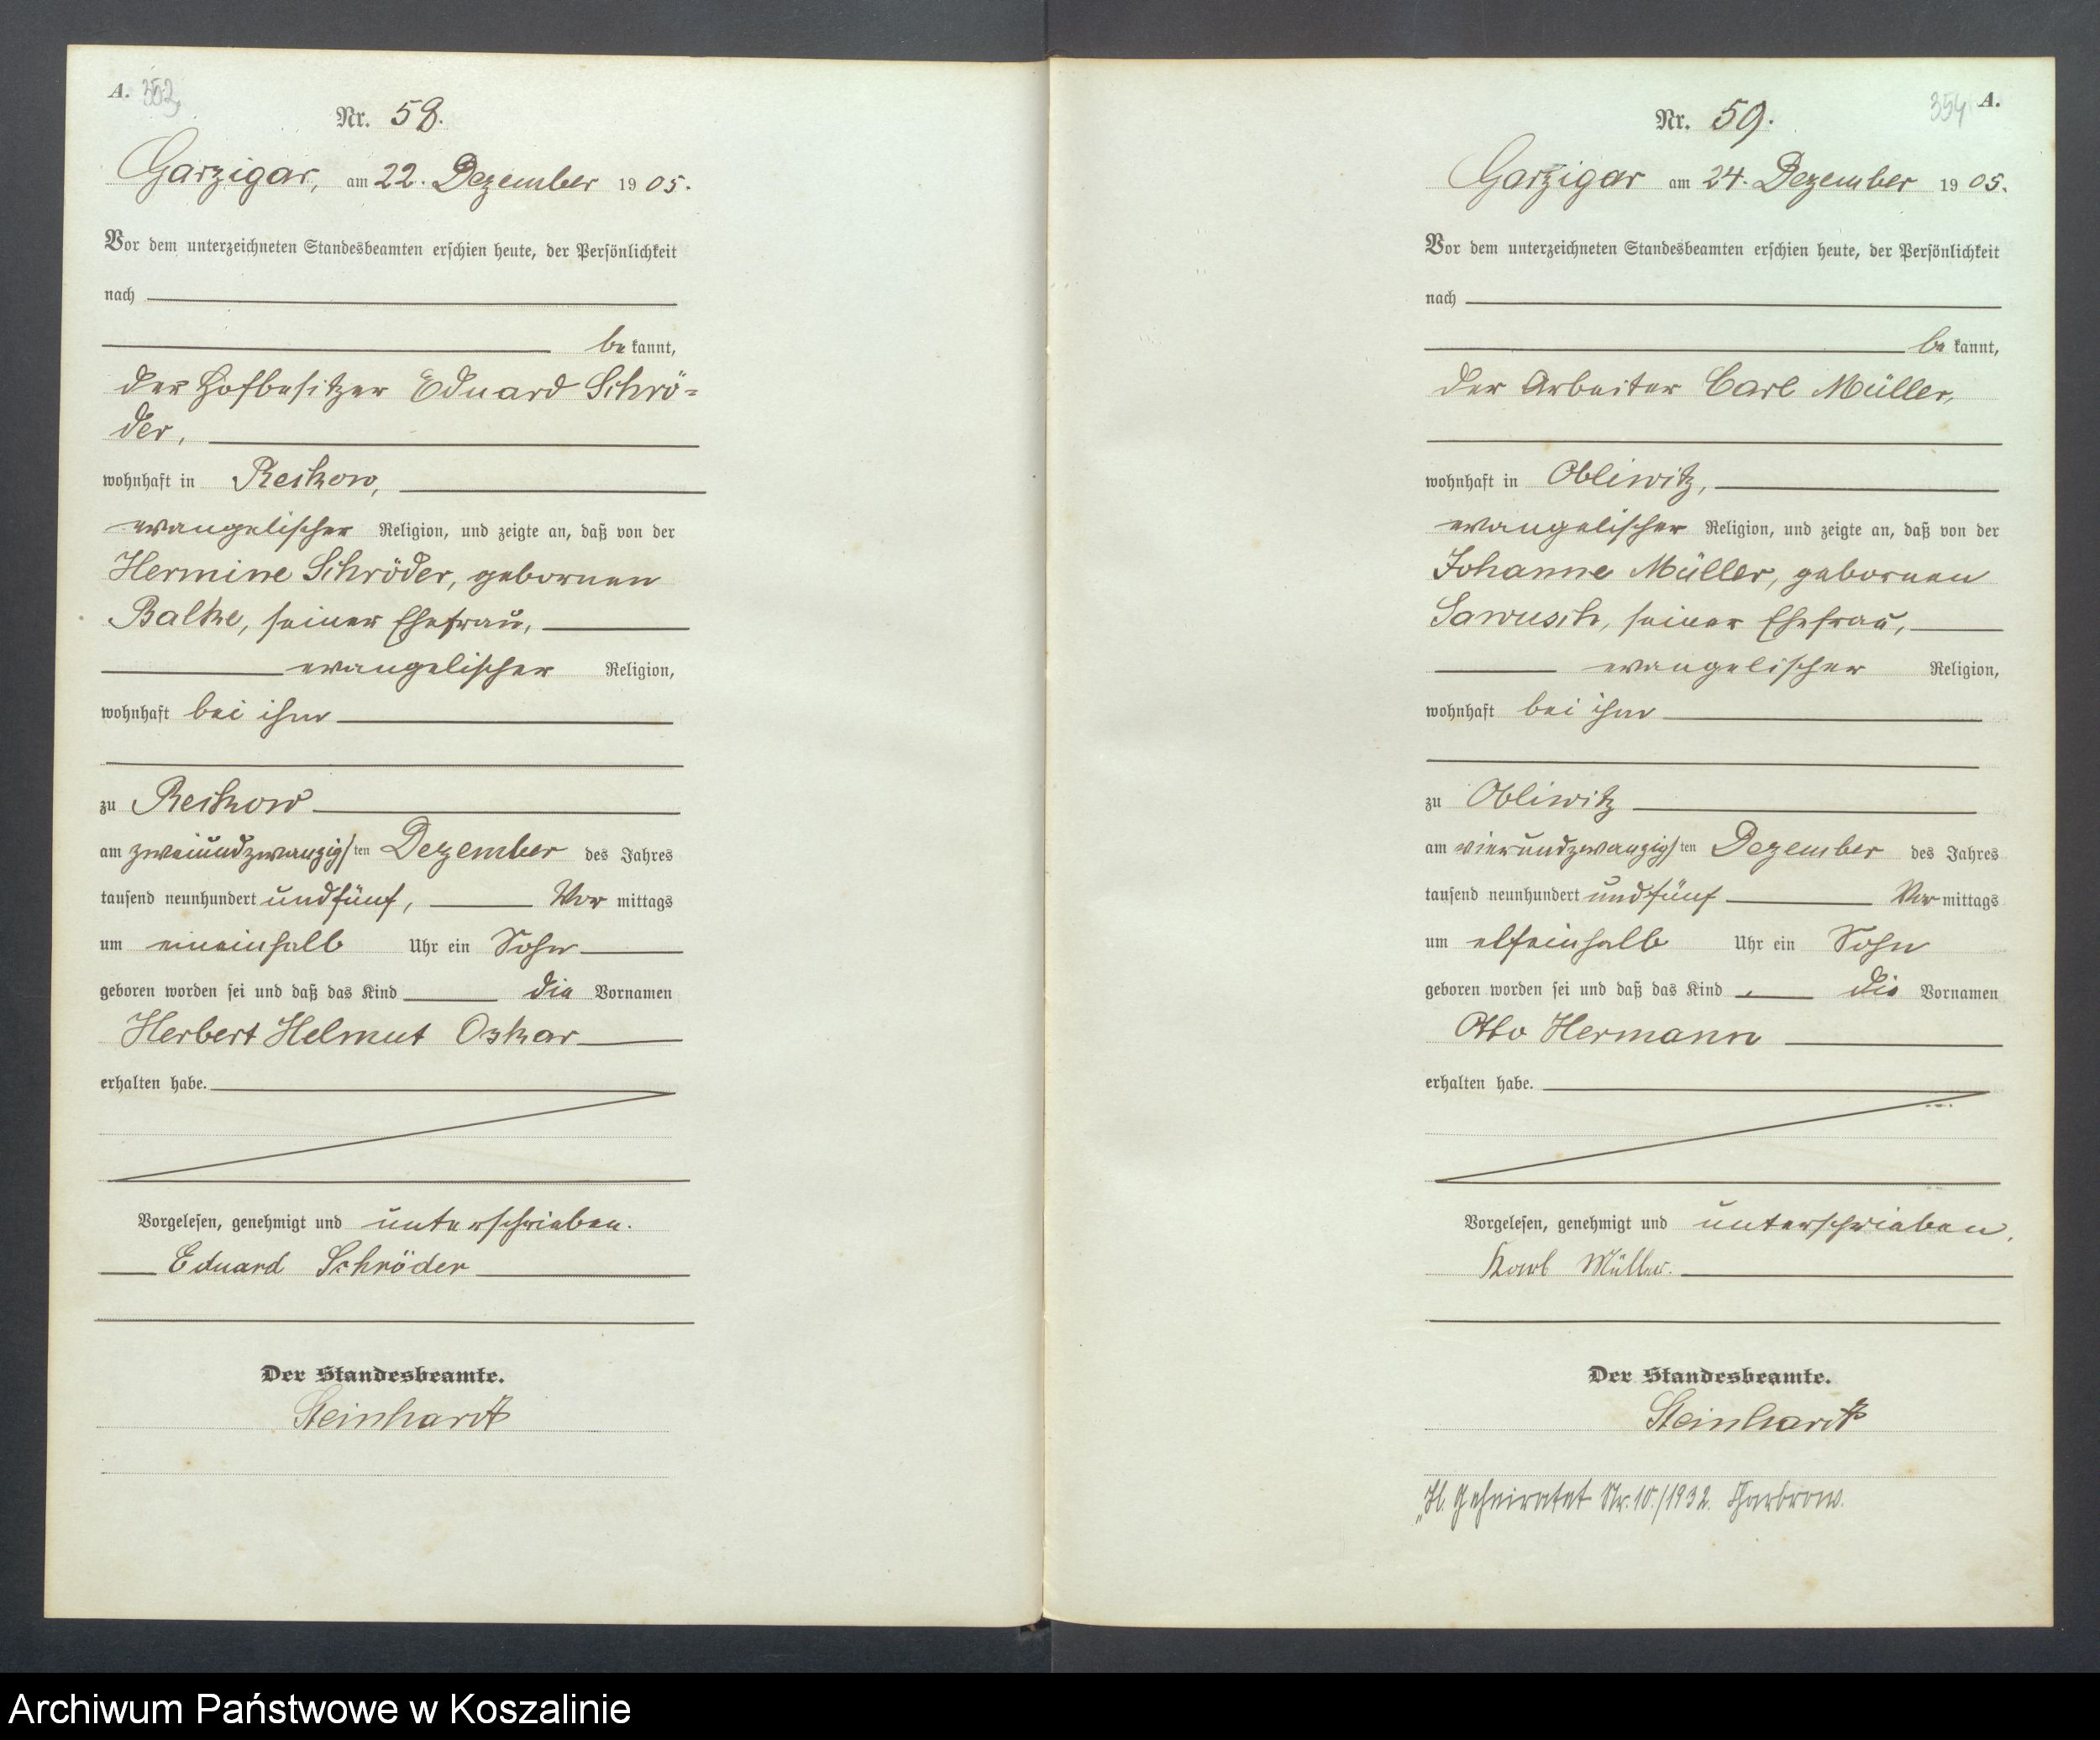 A.
Nr. 58.
Garzigar, am 22. Dezember 1905.
Vor dem unterzeichneten Standesbeamten erschien heute, der Persönlichkeit
nach
bekannt,
der Hofbesitzer Eduard Schrö=
der,
wohnhaft in Reskow,
evangelischer Religion, und zeigte an, daß von der
Hermine Schröder, gebornen
Balke, seiner Ehefrau,
evangelischer Religion,
wohnhaft bei ihm
zu Reskow
am zweiundzwanzigsten Dezember des Jahres
tausend neunhundert undfünf, Vor mittags
um eineinhalb Uhr ein Sohn
geboren worden sei und daß das Kind die Vornamen
Herbert Helmut Oskar
erhalten habe.
Vorgelesen, genehmigt und unterschrieben.
Eduard Schröder
Der Standesbeamte.
Steinhardt
354 A.
Nr. 59.
Garzigar am 24. Dezember 1905.
Vor dem unterzeichneten Standesbeamten erschien heute, der Persönlichkeit
nach
bekannt,
der Arbeiter Carl Müller,
wohnhaft in Obliwitz,
evangelischer Religion, und zeigte an, daß von der
Johanne Müller, gebornen
Sawusch, seiner Ehefrau,
evangelischer Religion,
wohnhaft bei ihm
zu Obliwitz
am vierundzwanzigsten Dezember des Jahres
tausend neunhundert undfünf Vor mittags
um elfeinhalb Uhr ein Sohn
geboren worden sei und daß das Kind die Vornamen
Otto Hermann
erhalten habe.
Vorgelesen, genehmigt und unterschrieben.
Karl Müller.
Der Standesbeamte.
Steinhardt
geheiratet Nr. 10./1932.
Archiwum Państwowe w Koszalinie